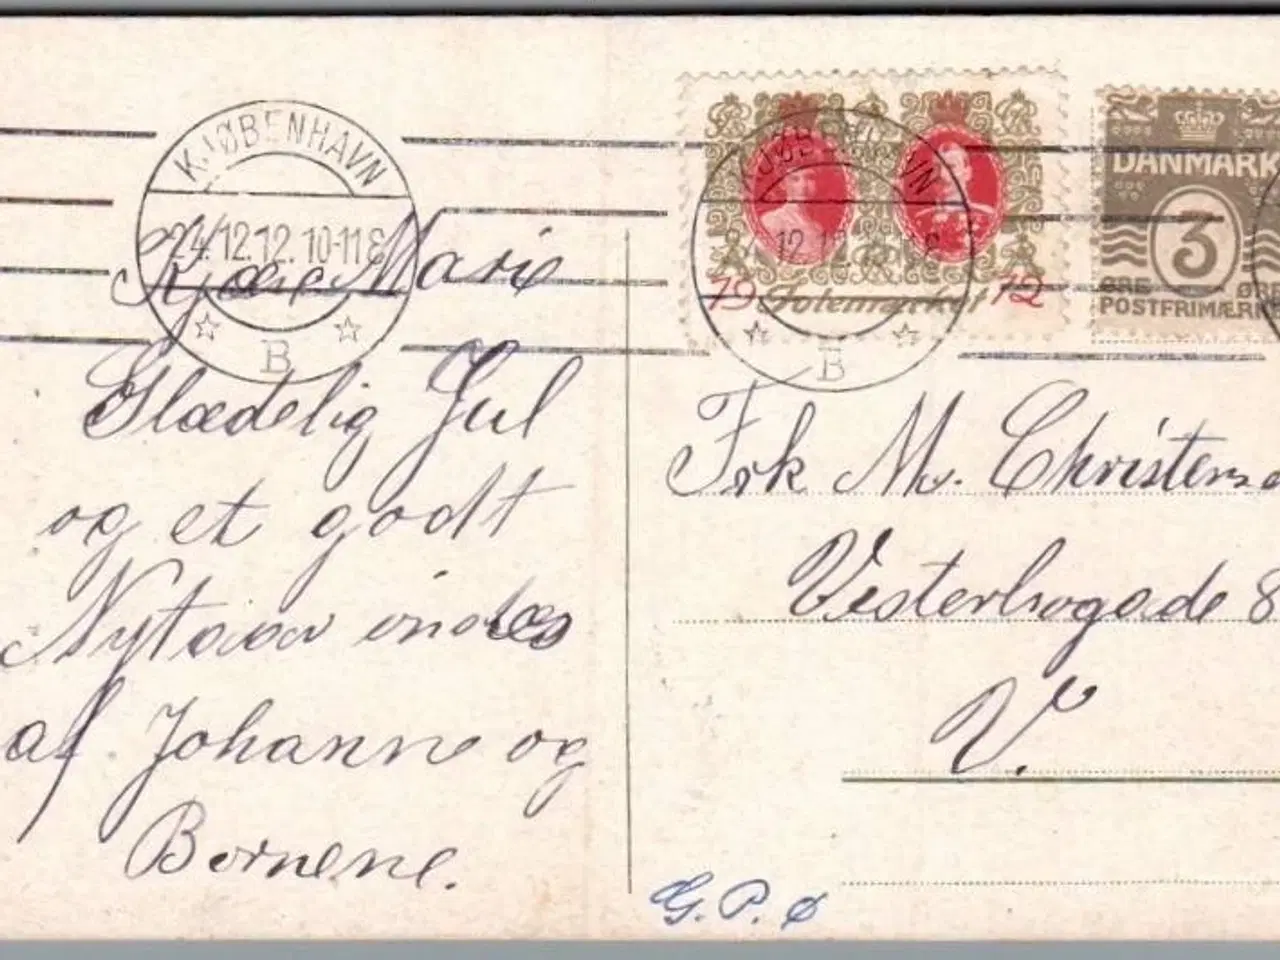 KJØBENHAVN
24.12.12. 10-11 E
B
KJØBENHAVN
B
19 Julemærket 12
DANMARK
3
ØRE ØRE
POSTFRIMÆRKE
Kjære Marie
Glædelig Jul
og et godt
Nytaar
af Johanne og
Bornene.
Frk M. Christens
Vesterbrogade 8
V.
G.P.Ø